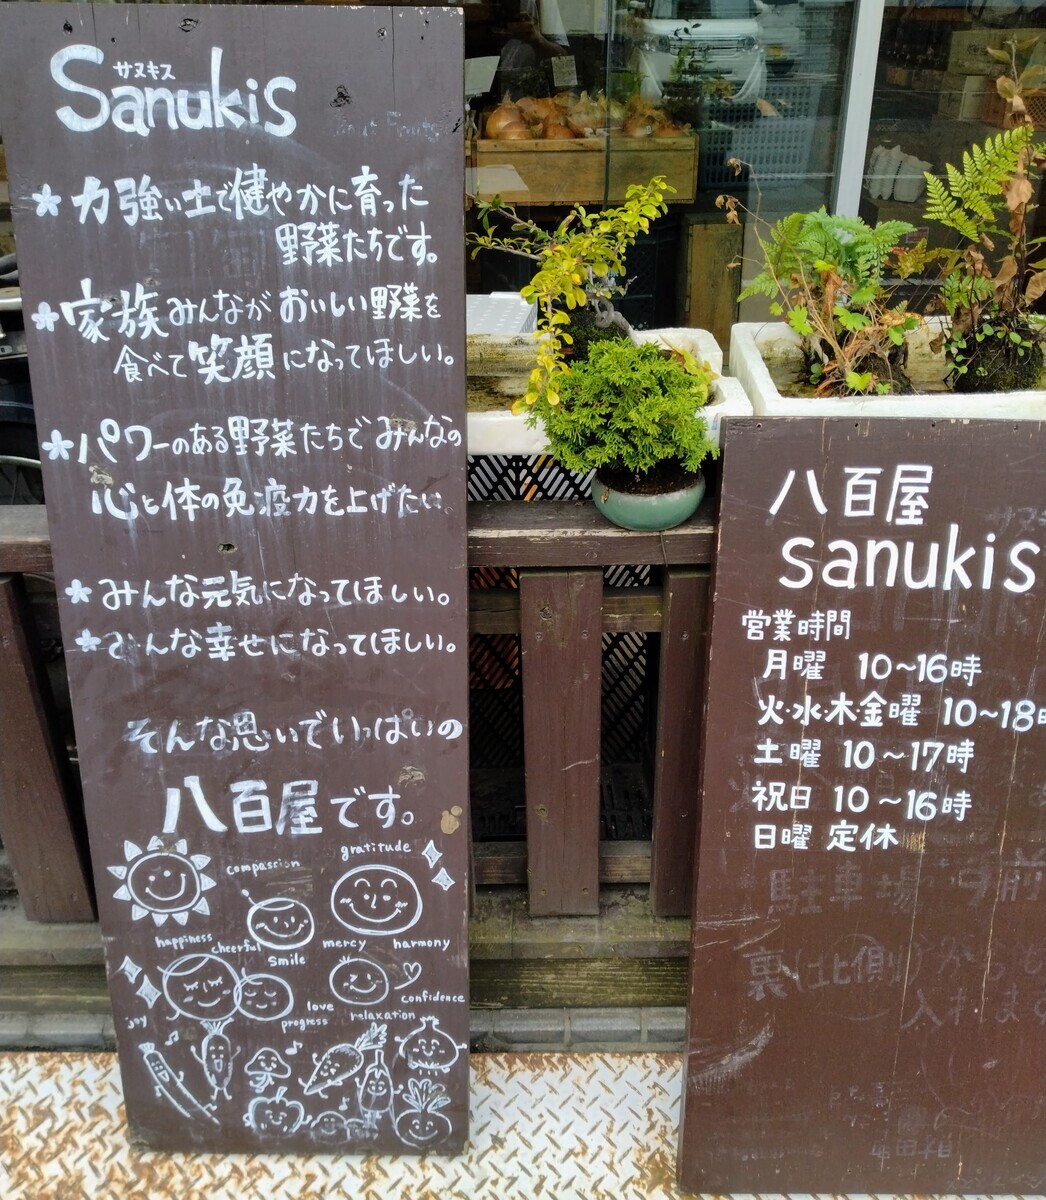 サヌキス
Sanukis
* 力強い土で健やかに育った
野菜たちです。
* 家族みんながおいしい野菜を
食べて笑顔になってほしい。
* パワーのある野菜たちでみんなの
心と体の免疫力を上げたい。
* みんな元気になってほしい。
* みんな幸せになってほしい。
そんな思いでいっぱいの
八百屋です。
gratitude
compassion
happiness
cheerful
smile
mercy
harmony
joy
love
progress
relaxation
confidence
八百屋
sanukis
営業時間
月曜 10~16時
火・水・木・金曜 10~18時
土曜 10~17時
祝日 10~16時
日曜 定休
駐車場
裏(北側)から
入れます